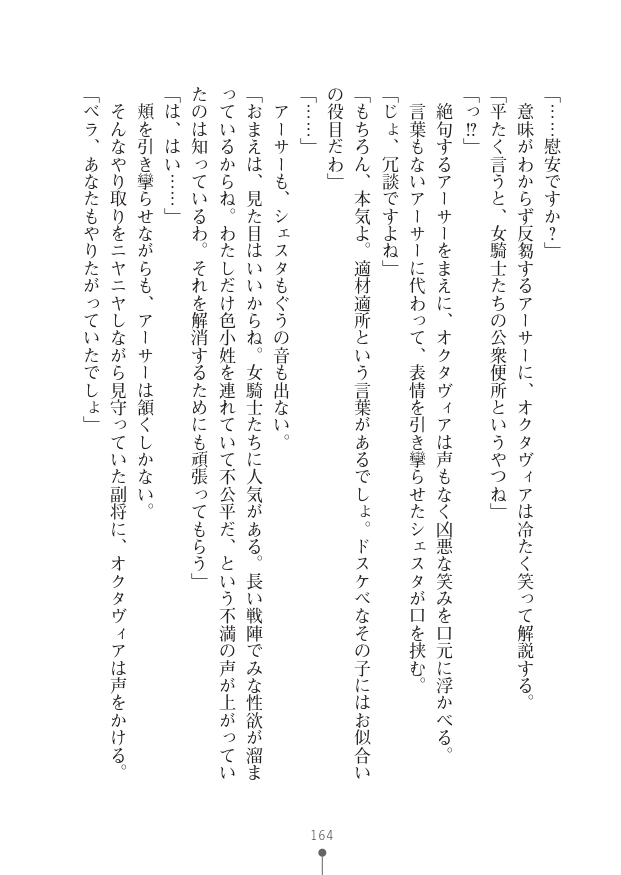 「……慰安ですか？」
意味がわからず反芻するアーサーに、オクタヴィアは冷たく笑って解説する。
「平たく言うと、女騎士たちの公衆便所というやつね」
「っ!?」
絶句するアーサーをまえに、オクタヴィアは声もなく凶悪な笑みを口元に浮かべる。
言葉もないアーサーに代わって、表情を引き攣らせたシェスタが口を挟む。
「じょ、冗談ですよね」
「もちろん、本気よ。適材適所という言葉があるでしょ。ドスケベなその子にはお似合い
の役目だわ」
「……」
アーサーも、シェスタもぐうの音も出ない。
「おまえは、見た目はいいからね。女騎士たちに人気がある。長い戦陣でみな性欲が溜ま
っているからね。わたしだけ色小姓を連れていて不公平だ、という不満の声が上がってい
たのは知っているわ。それを解消するためにも頑張ってもらう」
「は、はい……」
頬を引き攣らせながらも、アーサーは頷くしかない。
そんなやり取りをニヤニヤしながら見守っていた副将に、オクタヴィアは声をかける。
「ベラ、あなたもやりたがっていたでしょ」
164